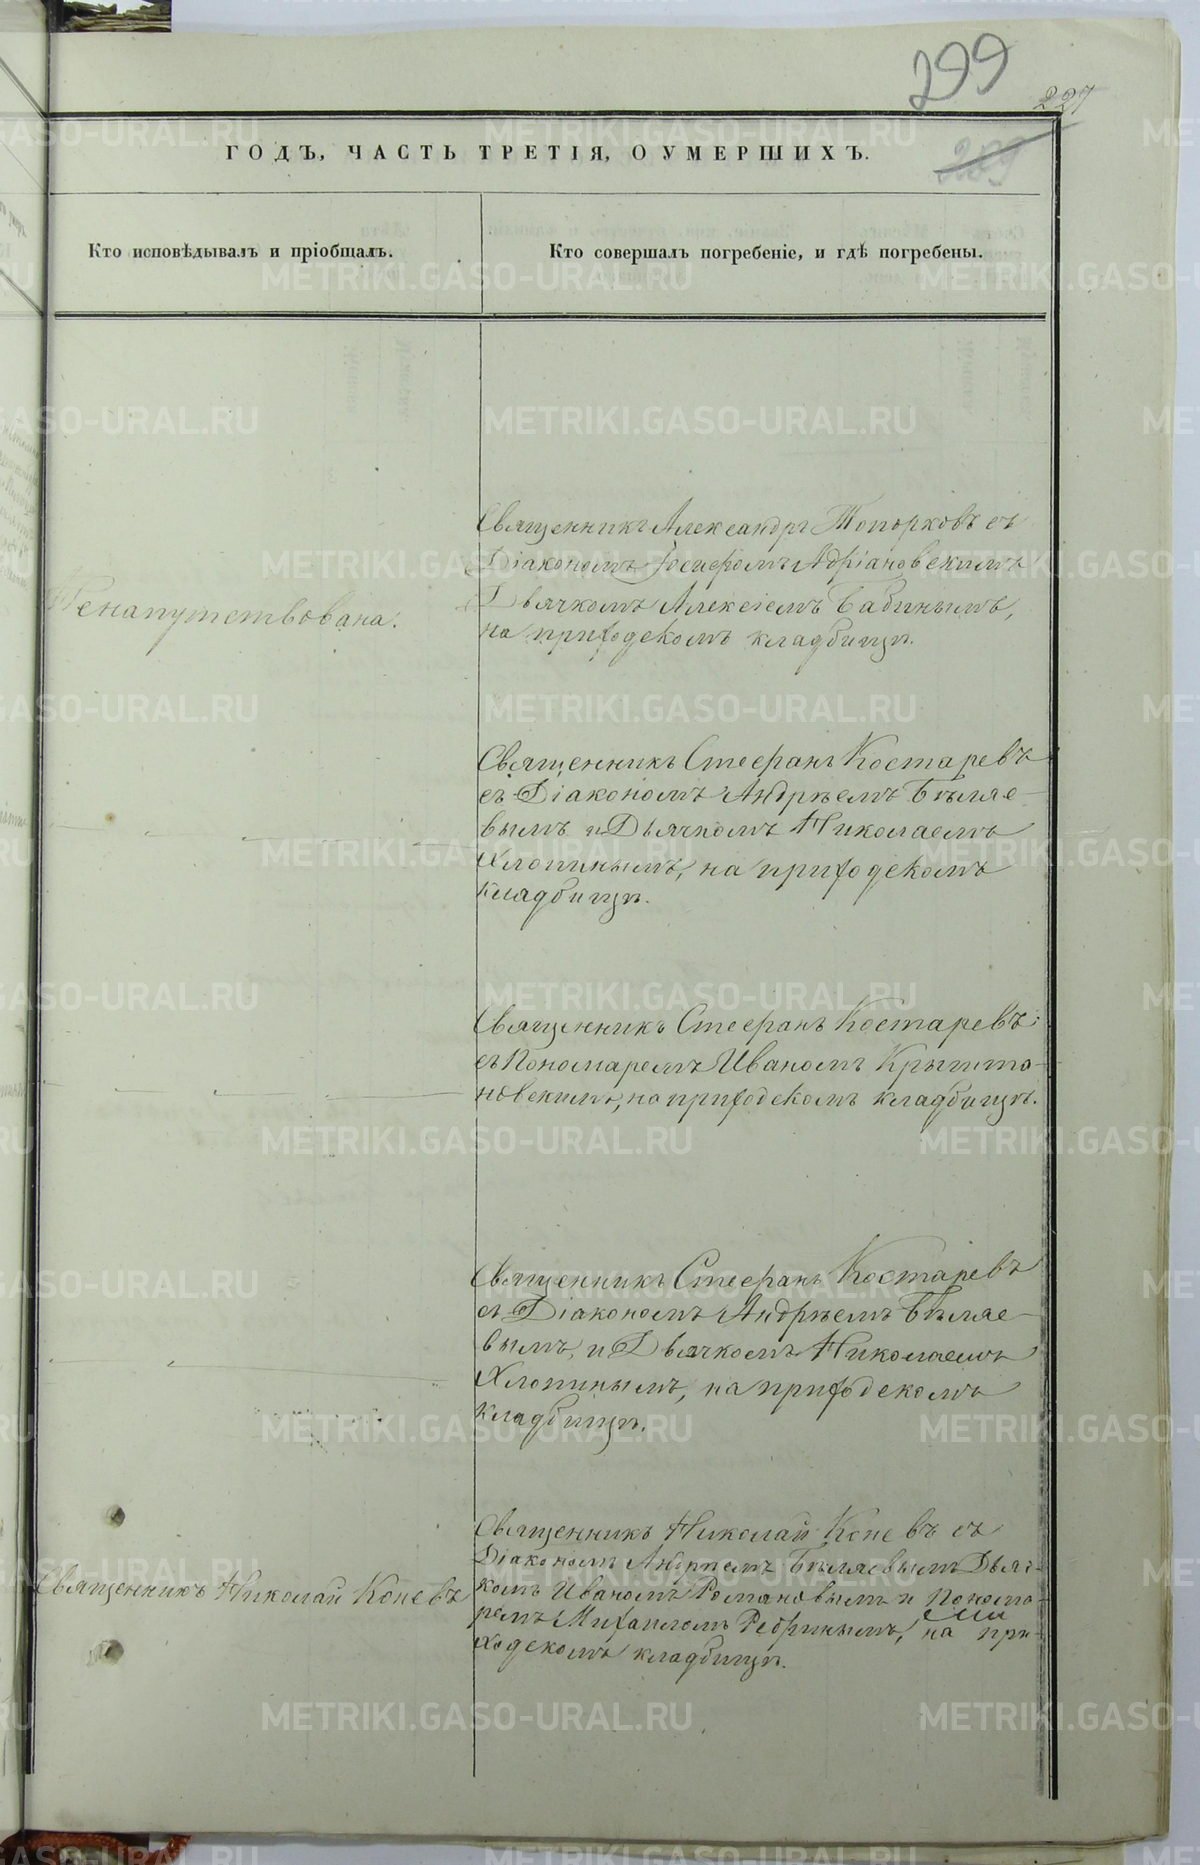 299
227
289
ГОДЪ, ЧАСТЬ ТРЕТІЯ, О УМЕРШИХЪ.
Кто исповѣдывалъ и пріобщалъ.
Кто совершалъ погребеніе, и гдѣ погребены.
Священникъ Александръ Топорковъ съ
Діакономъ Іосифомъ Адріановскимъ
Дьячкомъ Алексіемъ Бабинымъ,
на приходскомъ кладбищѣ.
Ненапутствована.
Священникъ Стефанъ Костаревъ
съ Діакономъ Андреемъ Бѣляе-
вымъ и Дьячкомъ Николаемъ
Хлопинымъ, на приходскомъ
кладбищѣ.
Священникъ Стефанъ Костаревъ
съ Пономаремъ Иваномъ
на приходскомъ кладбищѣ.
Священникъ Стефанъ Костаревъ
съ Діакономъ Андреемъ Бѣляе-
вымъ, и Дьячкомъ Николаемъ
Хлопинымъ, на приходскомъ
кладбищѣ.
Священникъ Николай Коневъ
Священникъ Николай Коневъ съ
Діакономъ Андреемъ Бѣляевымъ Дьяч-
комъ Иваномъ Романовымъ и Понома-
ремъ Михаиломъ Ребринымъ, на при-
ходскомъ кладбищѣ.
METRIKI.GASO-URAL.RU